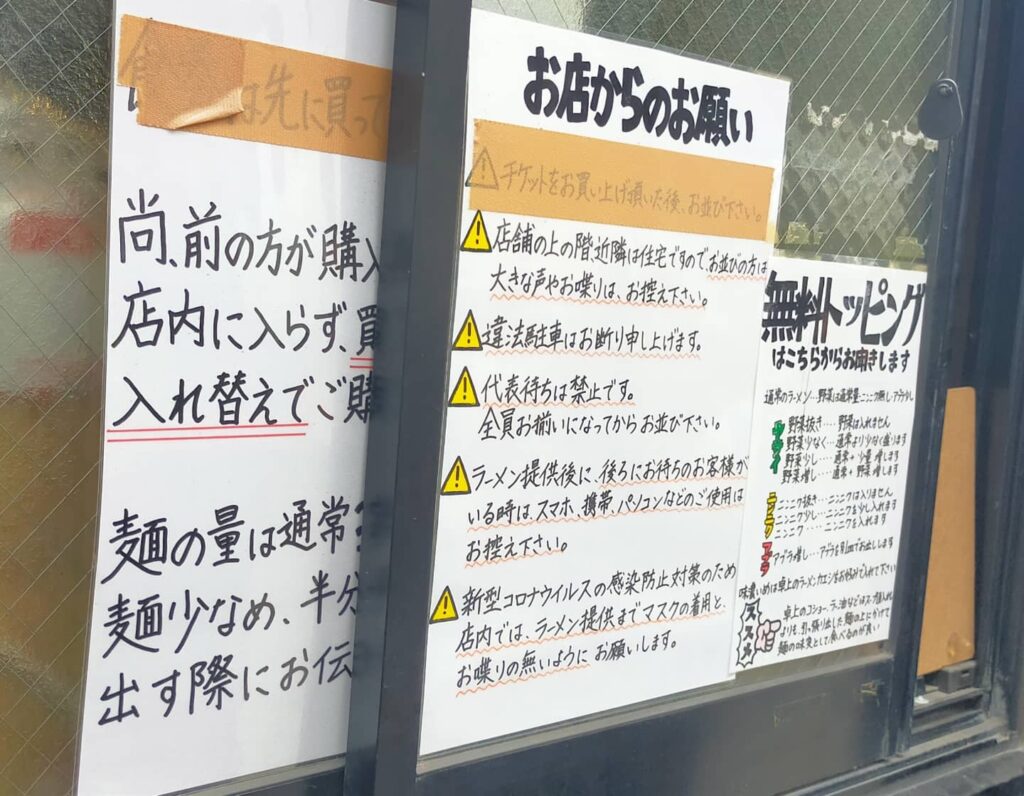 は先に買って
尚、前の方が購入
店内に入らず、買
入れ替えでご購
麺の量は通常
麺少なめ、半分
出す際にお伝
お店からのお願い
チケットをお買い上げ頂いた後、お並び下さい。
店舗の上の階、近隣は住宅ですのでお並びの方は
大きな声やお喋りは、お控え下さい。
違法駐車はお断り申し上げます。
代表待ちは禁止です。
全員お揃いになってからお並び下さい。
ラーメン提供後に、後ろにお待ちのお客様が
いる時は、スマホ、携帯、パソコンなどのご使用は
お控え下さい。
新型コロナウイルスの感染防止対策のため
店内では、ラーメン提供までマスクの着用と、
お喋りの無いようにお願いします。
無料トッピング
はこちらからお聞きします
通常のラーメン…野菜は通常量・ニンニク無し・アブラ少し
ヤサイ
野菜抜き…野菜は入れません
野菜少なく…通常より少なく盛ります
野菜少し…通常+少量増します
野菜増し…通常+野菜増します
ニンニク
ニンニク抜き…ニンニクは入りません
ニンニク少し…ニンニクを少し入れます
ニンニク…ニンニクを入れます
アブラ
アブラの増し…アブラを別皿でお出しします
味濃いめは卓上のラーメンカエシをお好みで入れて下さい
ススメ
卓上のコショー、ラー油などはスープに入れ
よりも、引っ張り出した麺の上にかけて
麺の味変として食べるのが良い